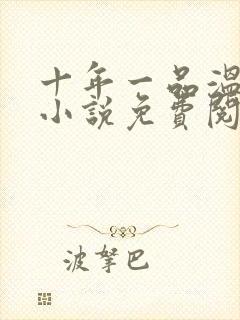 十年一品温
小说免费阅
波拏巴